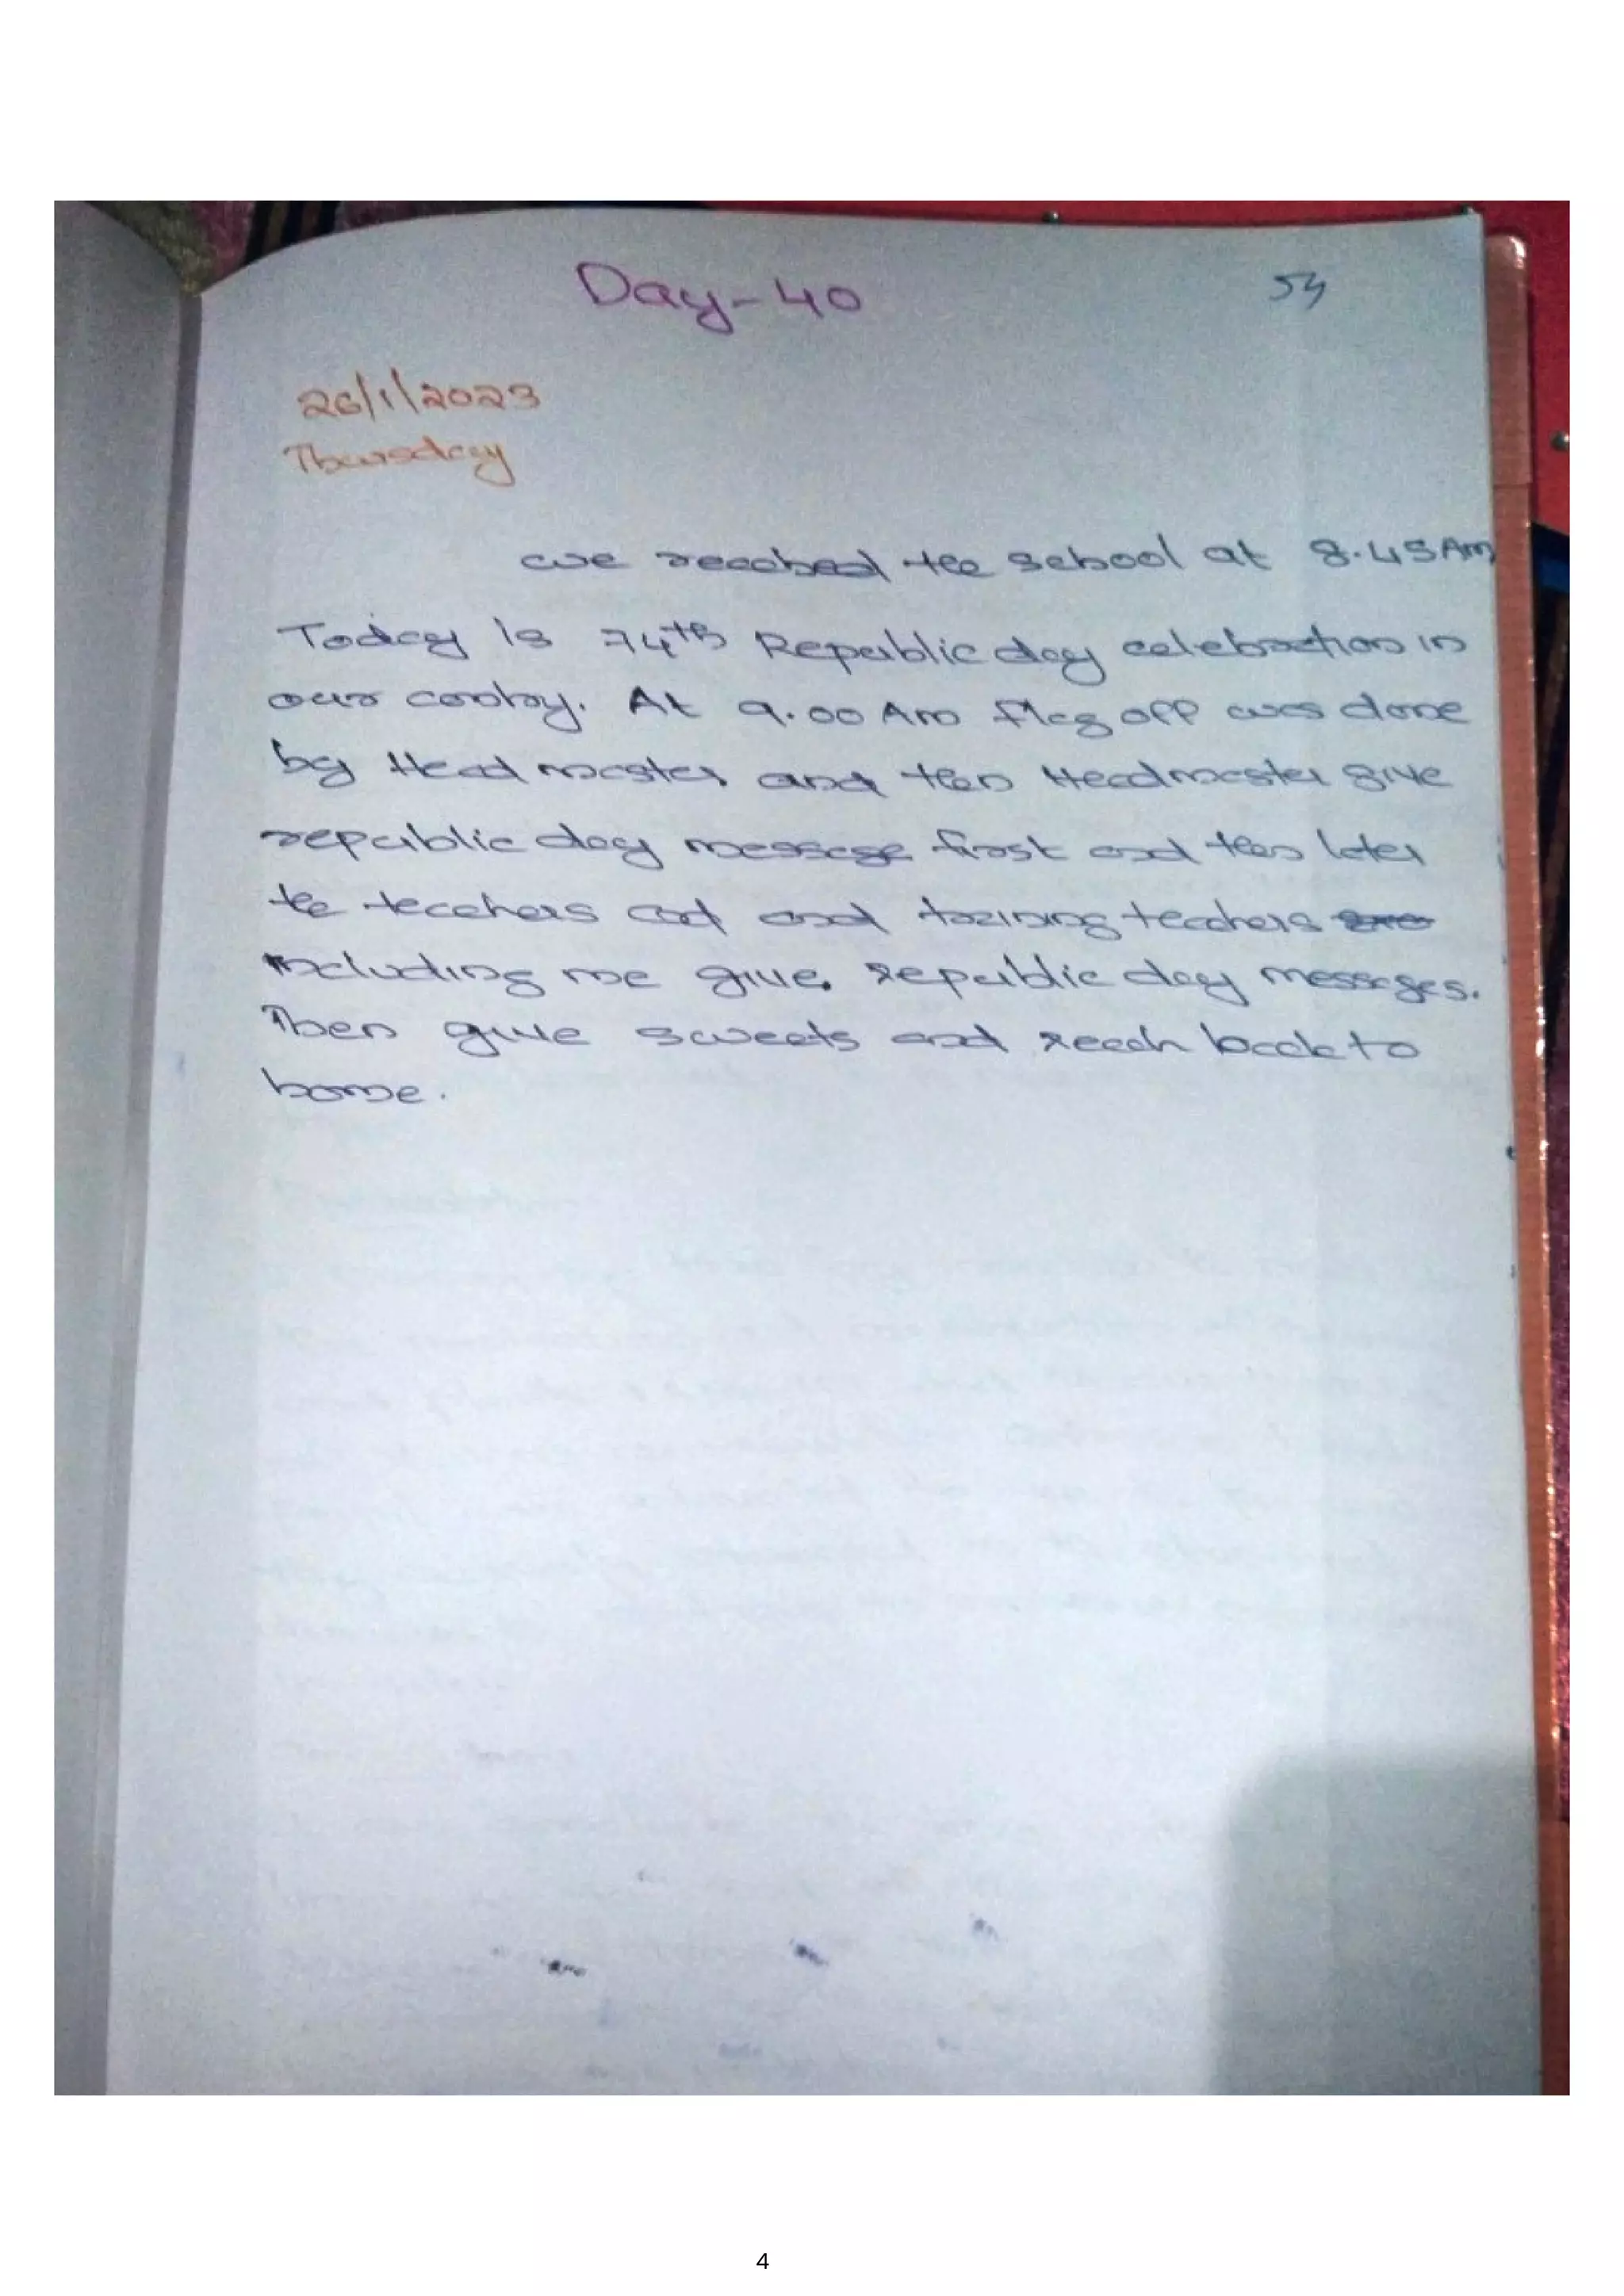 Day-40
54
26/1/2023
Thursday
we reached the school at 8.45 Am
Today is 74th Republic day celebration in
our contry. At 9.00 Am flag off was done
by Head master and then Headmaster give
republic day message first and then later
the teachers and training teachers
including me give. republic day messages.
Then give sweets and reach back to
home.
4